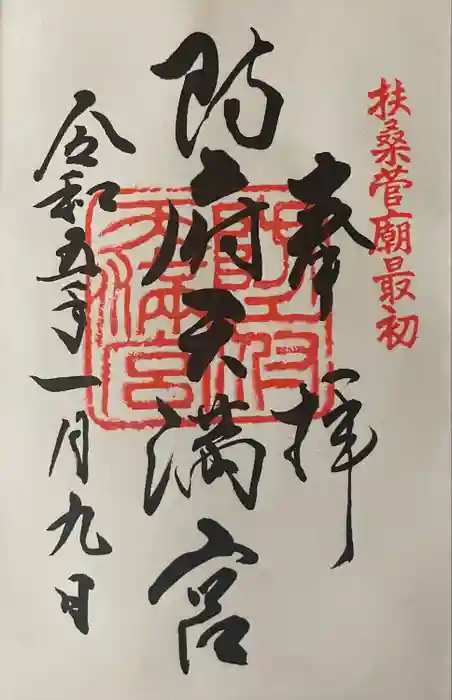 扶桑菅廟最初
奉拝
防府天満宮
令和五年一月九日
防府天満宮